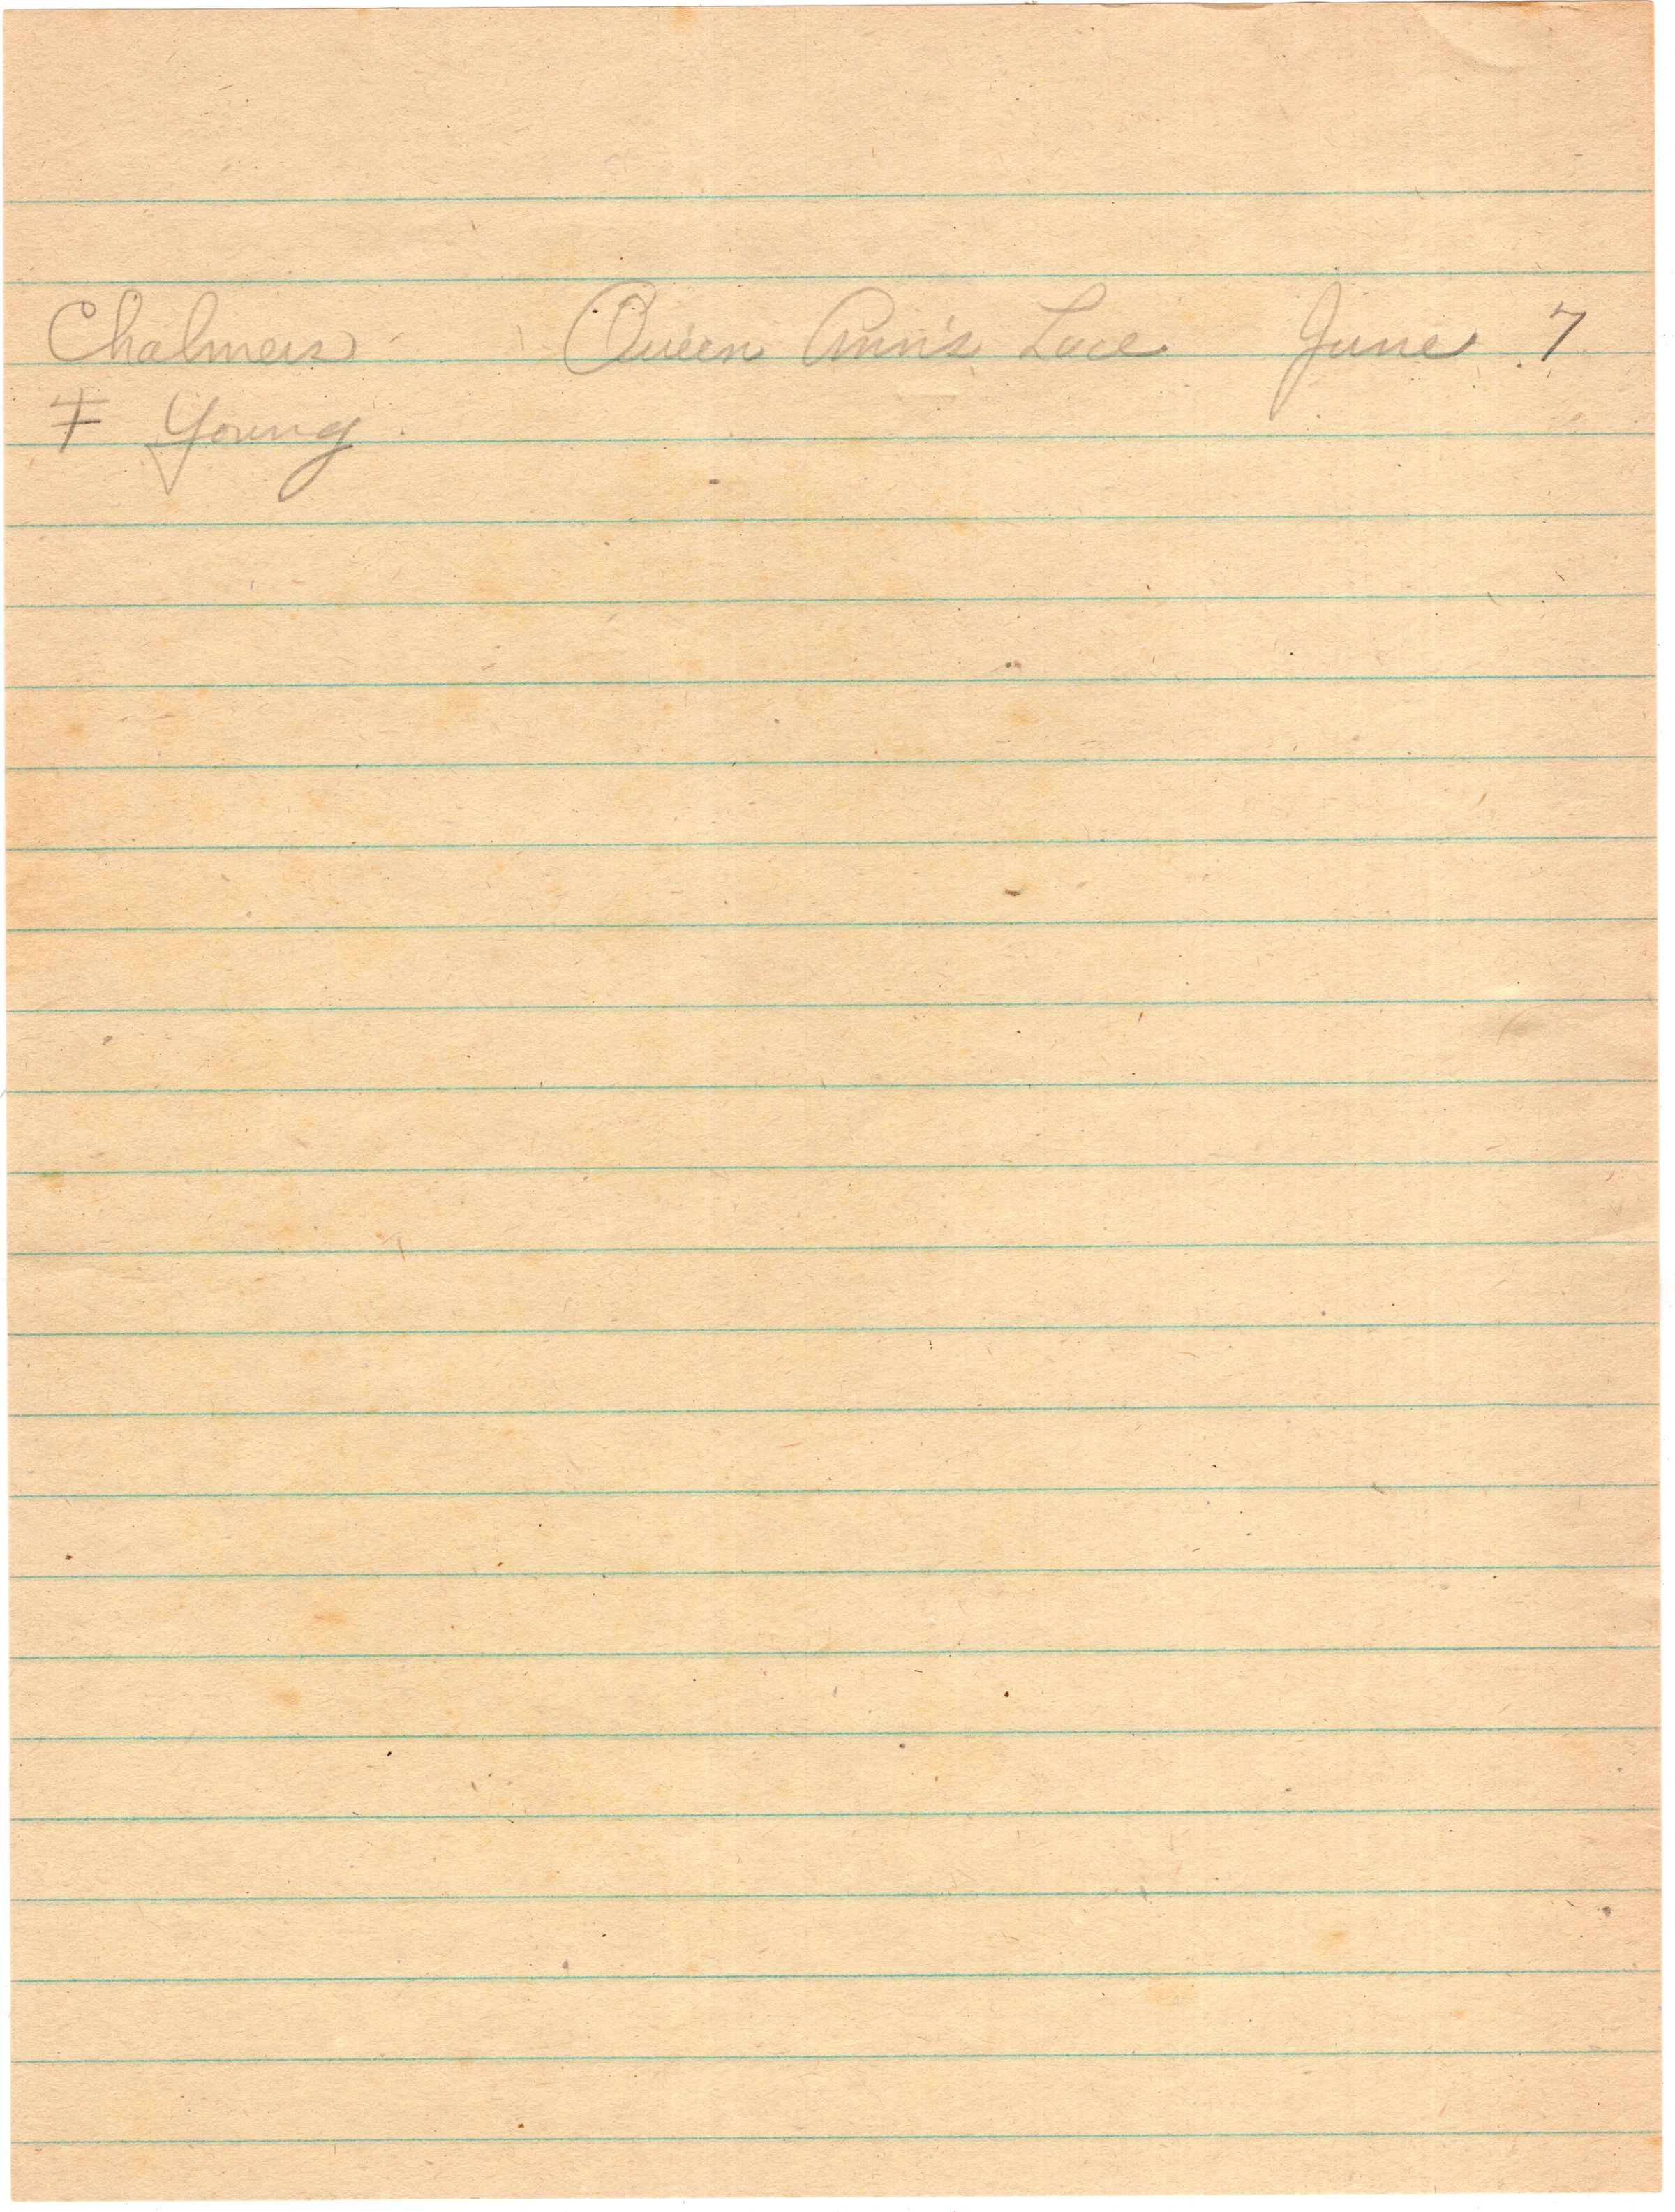 Chalmers Queen Ann's Lace June 7
F Young.